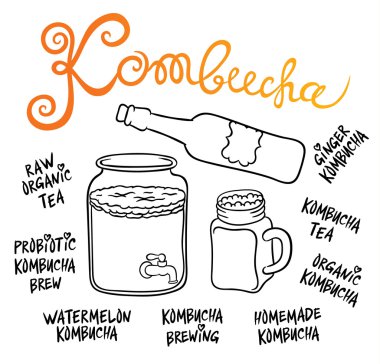 Kombucha
RAW
ORGANIC
TEA
GINGER
KOMBUCHA
PROBIOTIC
KOMBUCHA
BREW
KOMBUCHA
TEA
ORGANIC
KOMBUCHA
WATERMELON
KOMBUCHA
KOMBUCHA
BREWING
HOMEMADE
KOMBUCHA